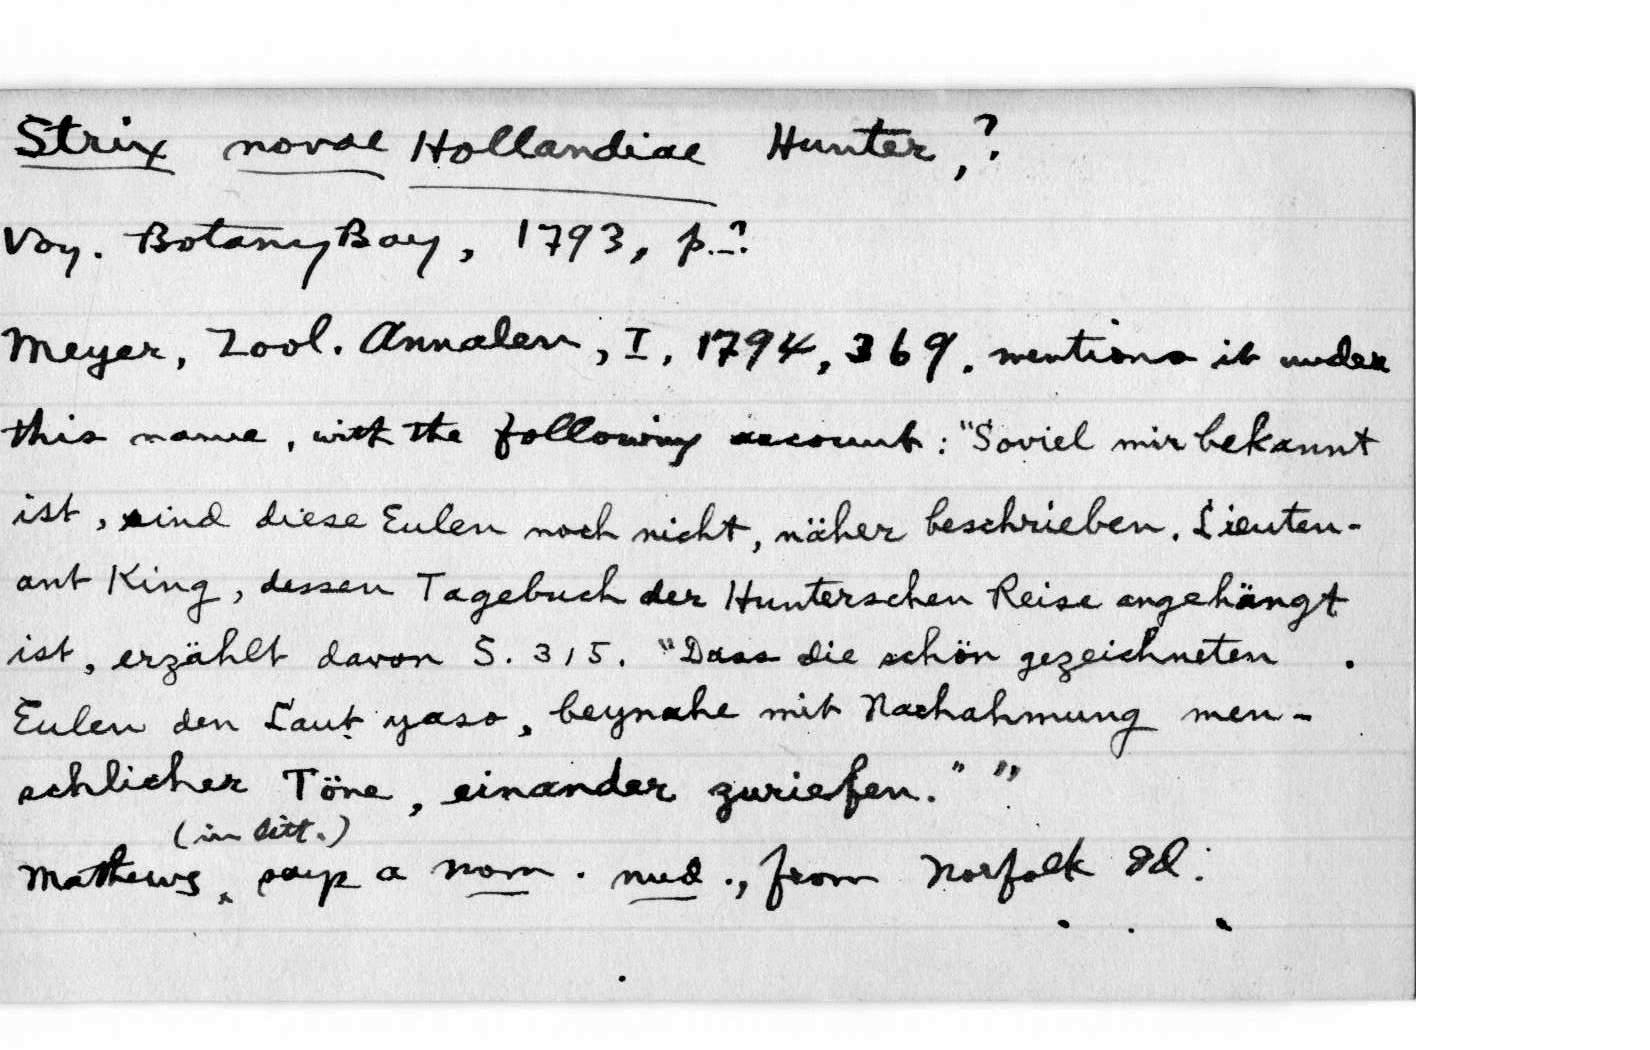 Strix novae Hollandiae Hunter,?
Voy. Botany Bay, 1793, p.–?
Meyer, Zool. Annalen, I, 1794, 369. mentions it under
this name, with the following account: "Soviel mir bekannt
ist, sind diese Eulen noch nicht, näher beschrieben. Lieuten-
ant King, dessen Tagebuch der Hunterschen Reise angehängt
ist, erzählt davon S. 315. "Dass die schön gezeichneten
Eulen den Laut yaso, beynahe mit Nachahmung men-
schlicher Töne, einander zuriefen." "
(in litt.)
Mathews, says a nom. nud., from Norfolk Id.